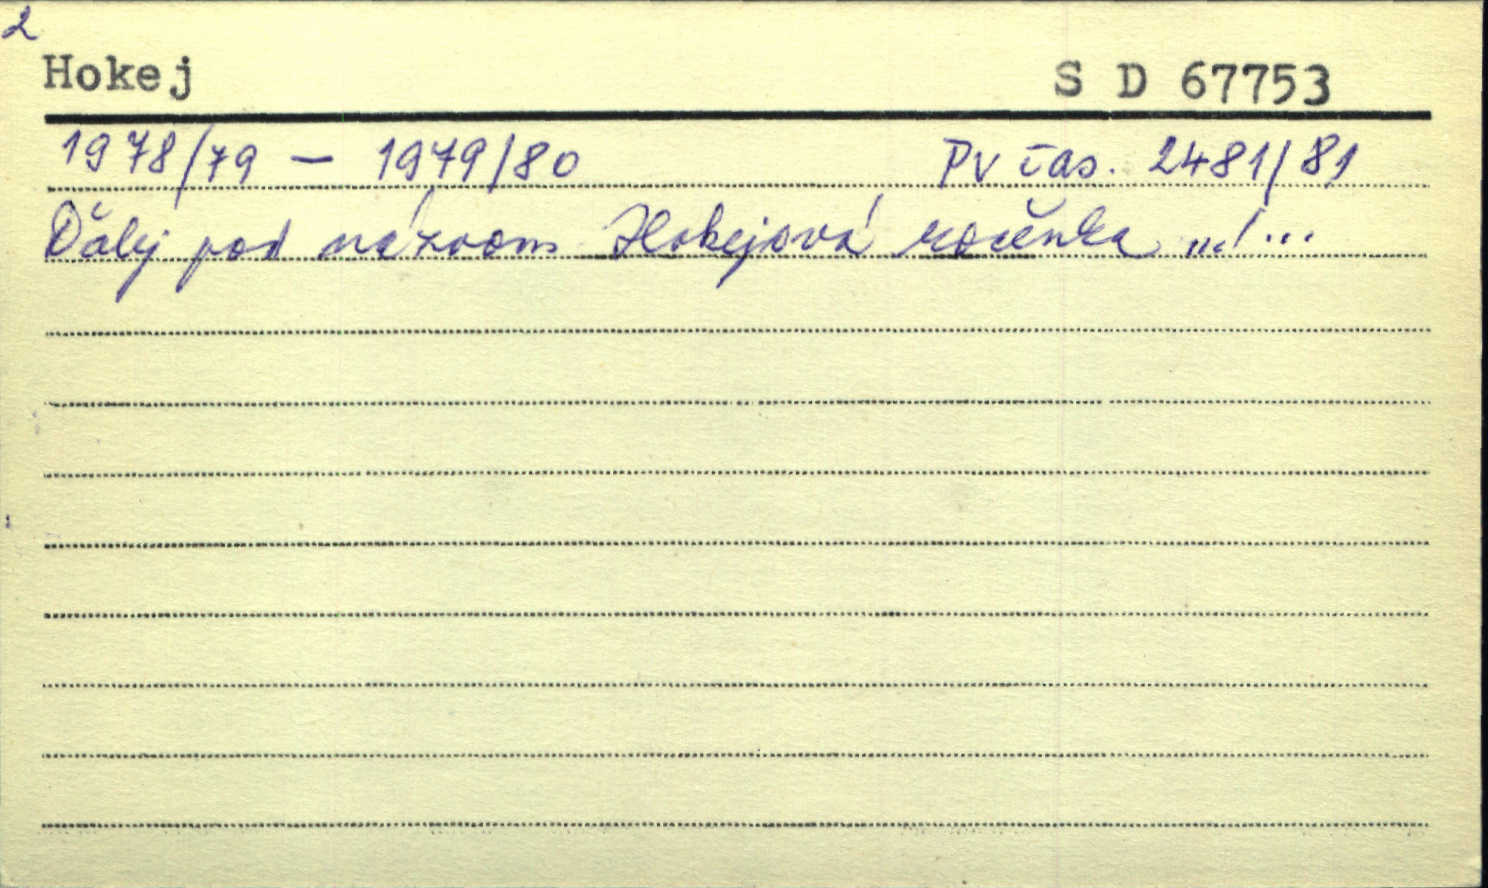 2
Hokej S D 67753
1978/79 — 1979/80 PV čas. 2481/81
Ďalej pod názvom Hokejová ročenka .../...